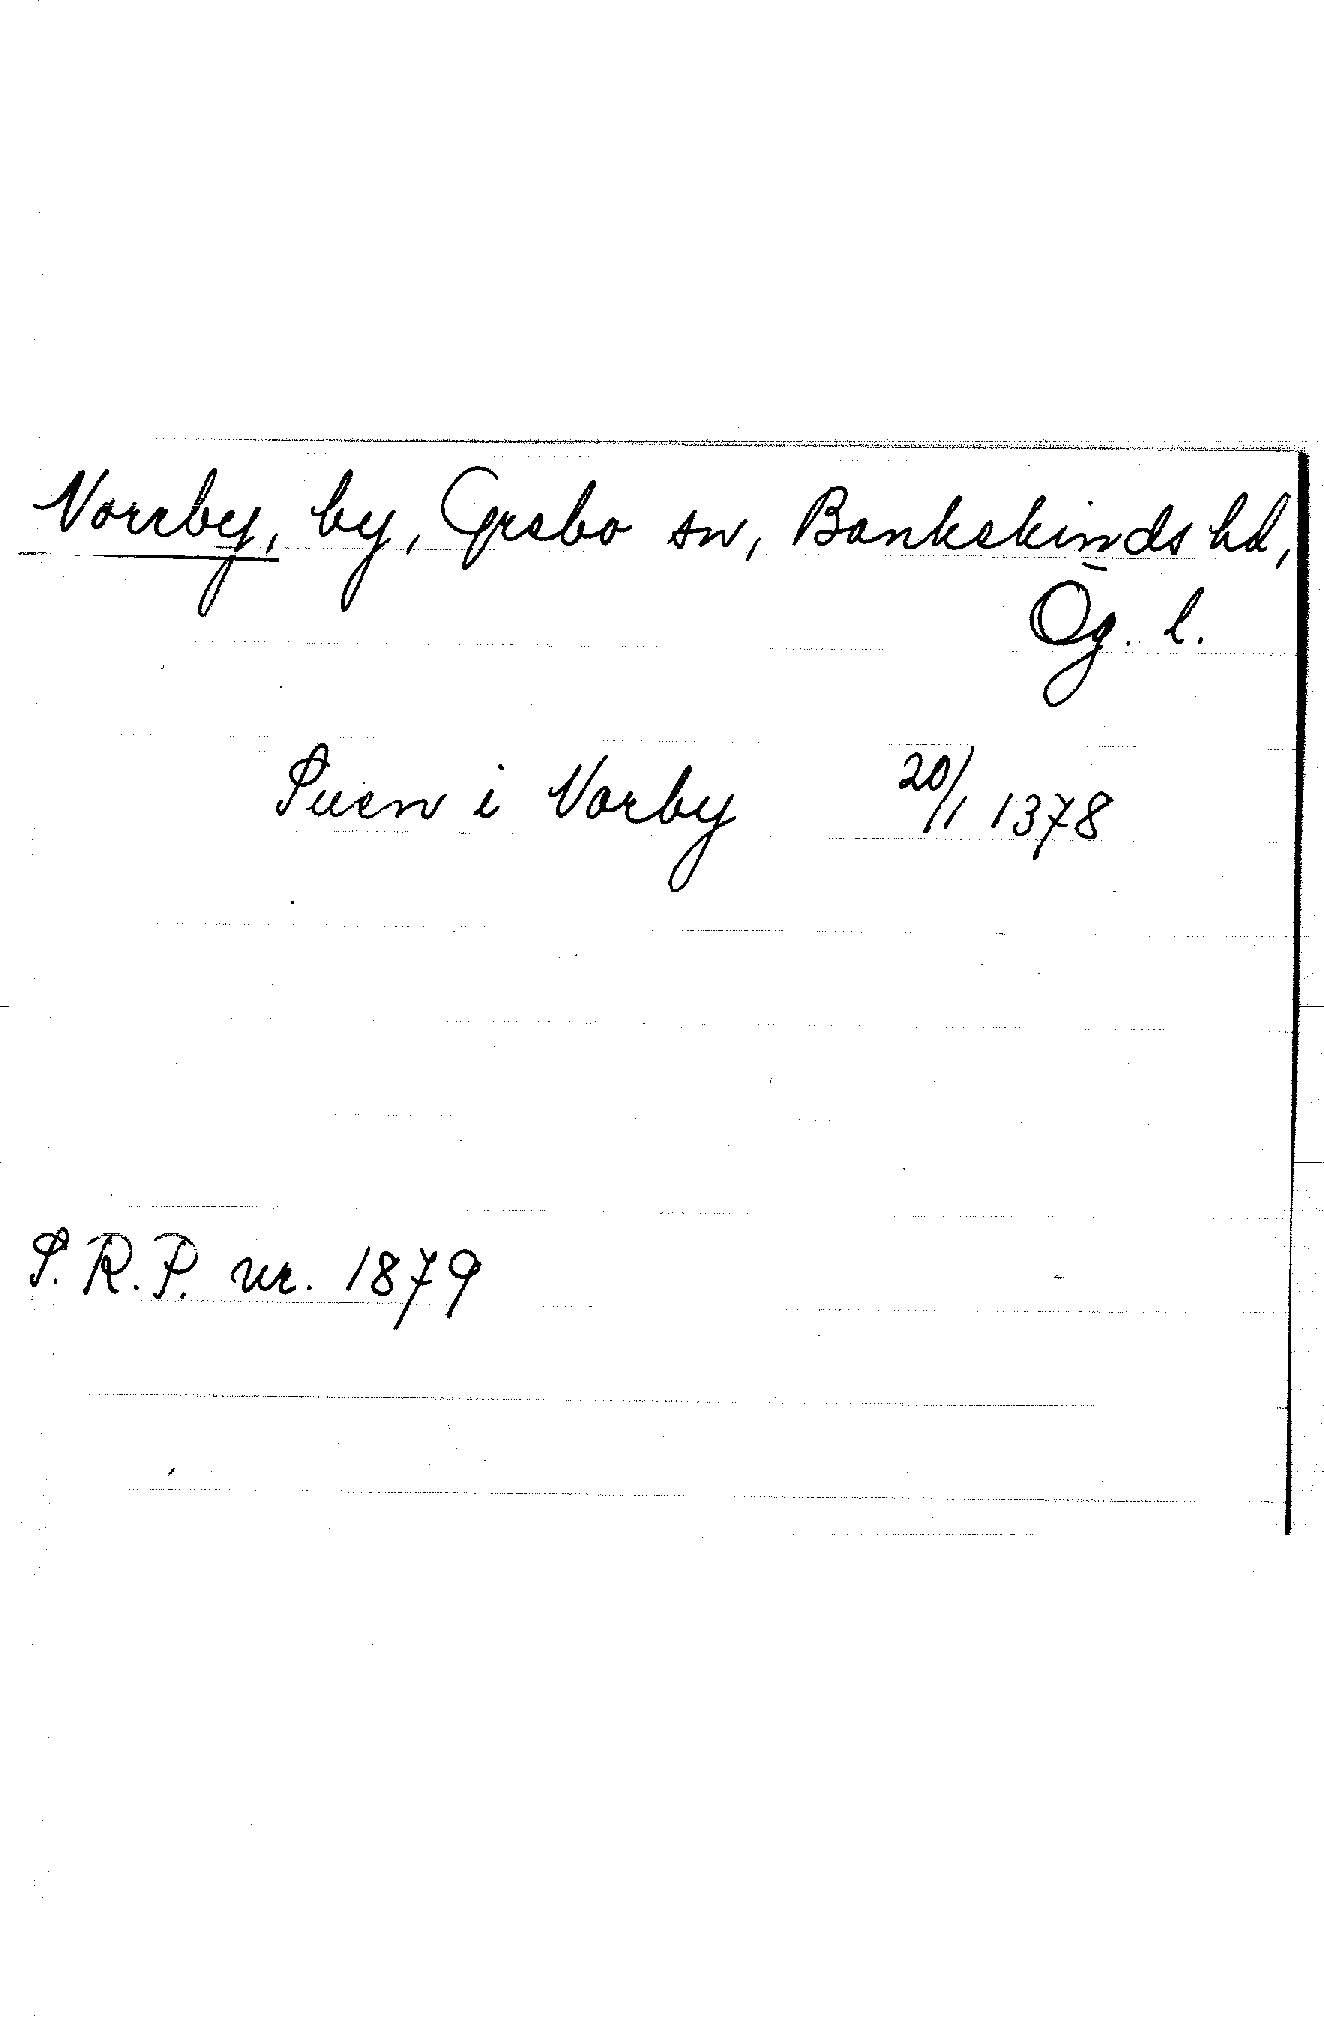 Norrby, by, Grebo sn, Bankekinds hd,
Ög. l.
Suen i Norby 20/1 1378
S. R. P. nr. 1879